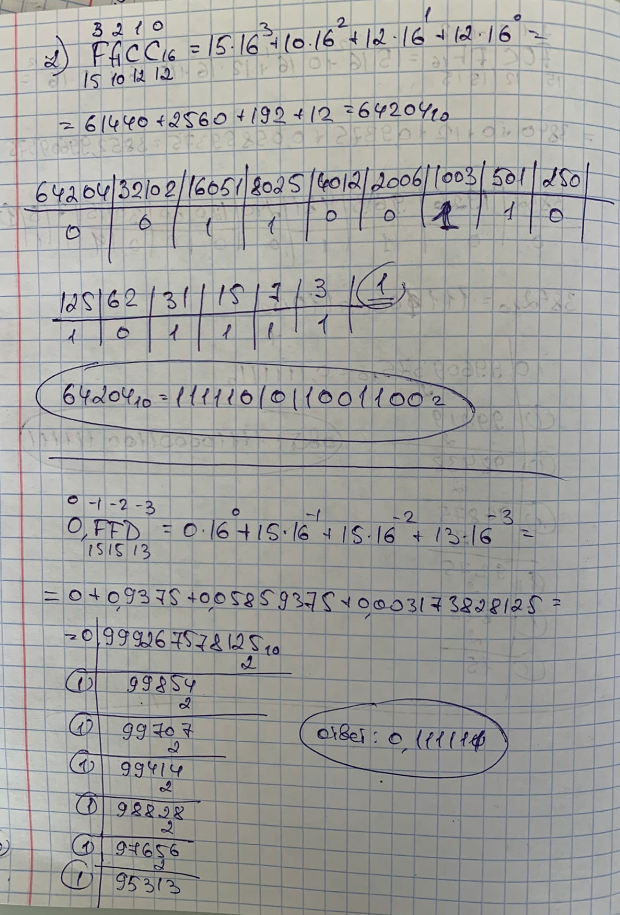 3 2 1 0
2) FACC₁₆ = 15·16³+10·16²+12·16¹+12·16⁰=
15 10 12 12
= 61440+2560+192+12=64204₁₀
64204|32102|16051|8025|4012|2006|1003|501|250|
0 | 0 | 1 | 1 | 0 | 0 | 1 | 1 | 0
125|62|31|15|7|3|1
1|0|1|1|1|1
64204₁₀=1111101011001100₂
0 -1 -2 -3
0,FFD = 0·16⁰+15·16⁻¹+15·16⁻²+13·16⁻³=
15 15 13
= 0+0,9375+0,05859375+0,003173828125=
=0|999267578125₁₀
2
1 99854
2
1 99707
2
1 99414
2
1 98828
2
1 97656
2
1 95313
ответ: 0,111111